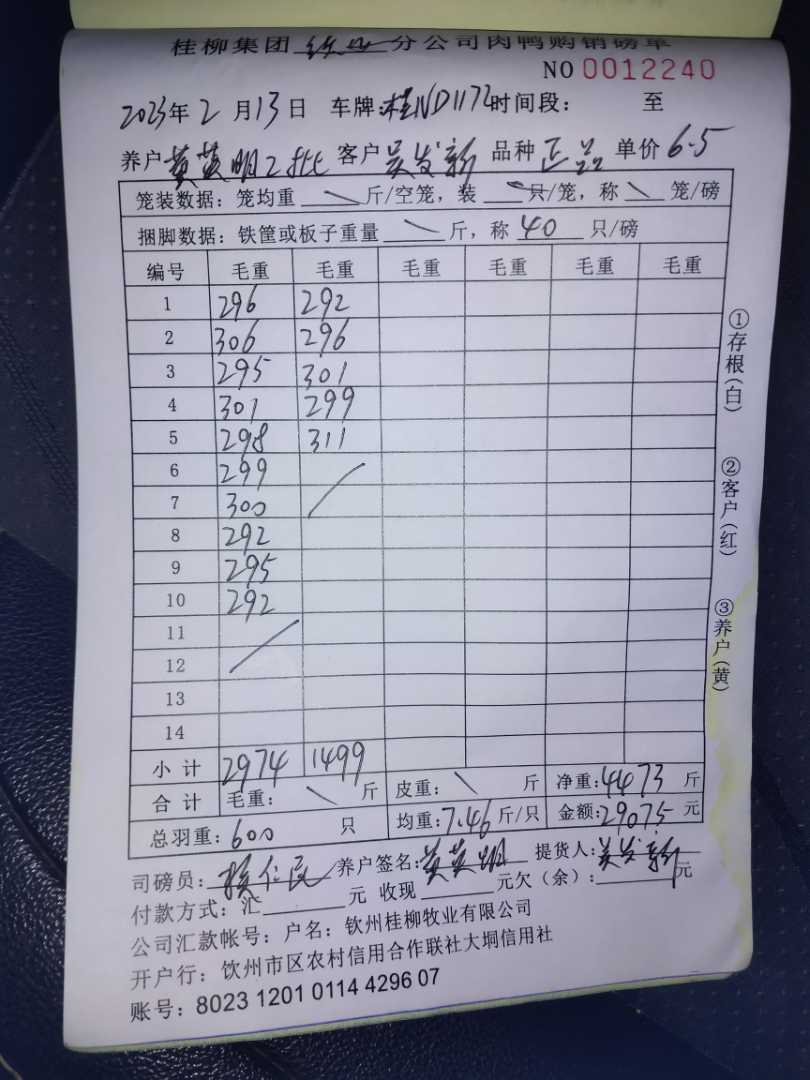 桂柳集团 钦州 分公司肉鸭购销磅单
NO 0012240
2023年2月13日 车牌:桂ND1172时间段: 至
养户黄英明2批 客户吴发新 品种正品 单价6.5
笼装数据: 笼均重 \ 斤/空笼, 装 \ 只/笼, 称 \ 笼/磅
捆脚数据: 铁筐或板子重量 \ 斤, 称 40 只/磅
编号 毛重 毛重 毛重 毛重 毛重 毛重
1 296 292
2 306 296
3 295 301
4 301 299
5 298 311
6 299
7 300 /
8 292
9 295
10 292
11
12 /
13
14
小计 2974 1499
合计 毛重: \ 斤 皮重: \ 斤 净重:4473 斤
总羽重: 600 只 均重:7.46 斤/只 金额:29075 元
司磅员: 养户签名:黄英明 提货人:吴发新
付款方式: 汇 元 收现 元欠(余): 元
公司汇款帐号: 户名: 钦州桂柳牧业有限公司
开户行: 钦州市区农村信用合作联社大垌信用社
账号: 8023 1201 0114 4296 07
①存根(白)
②客户(红)
③养户(黄)